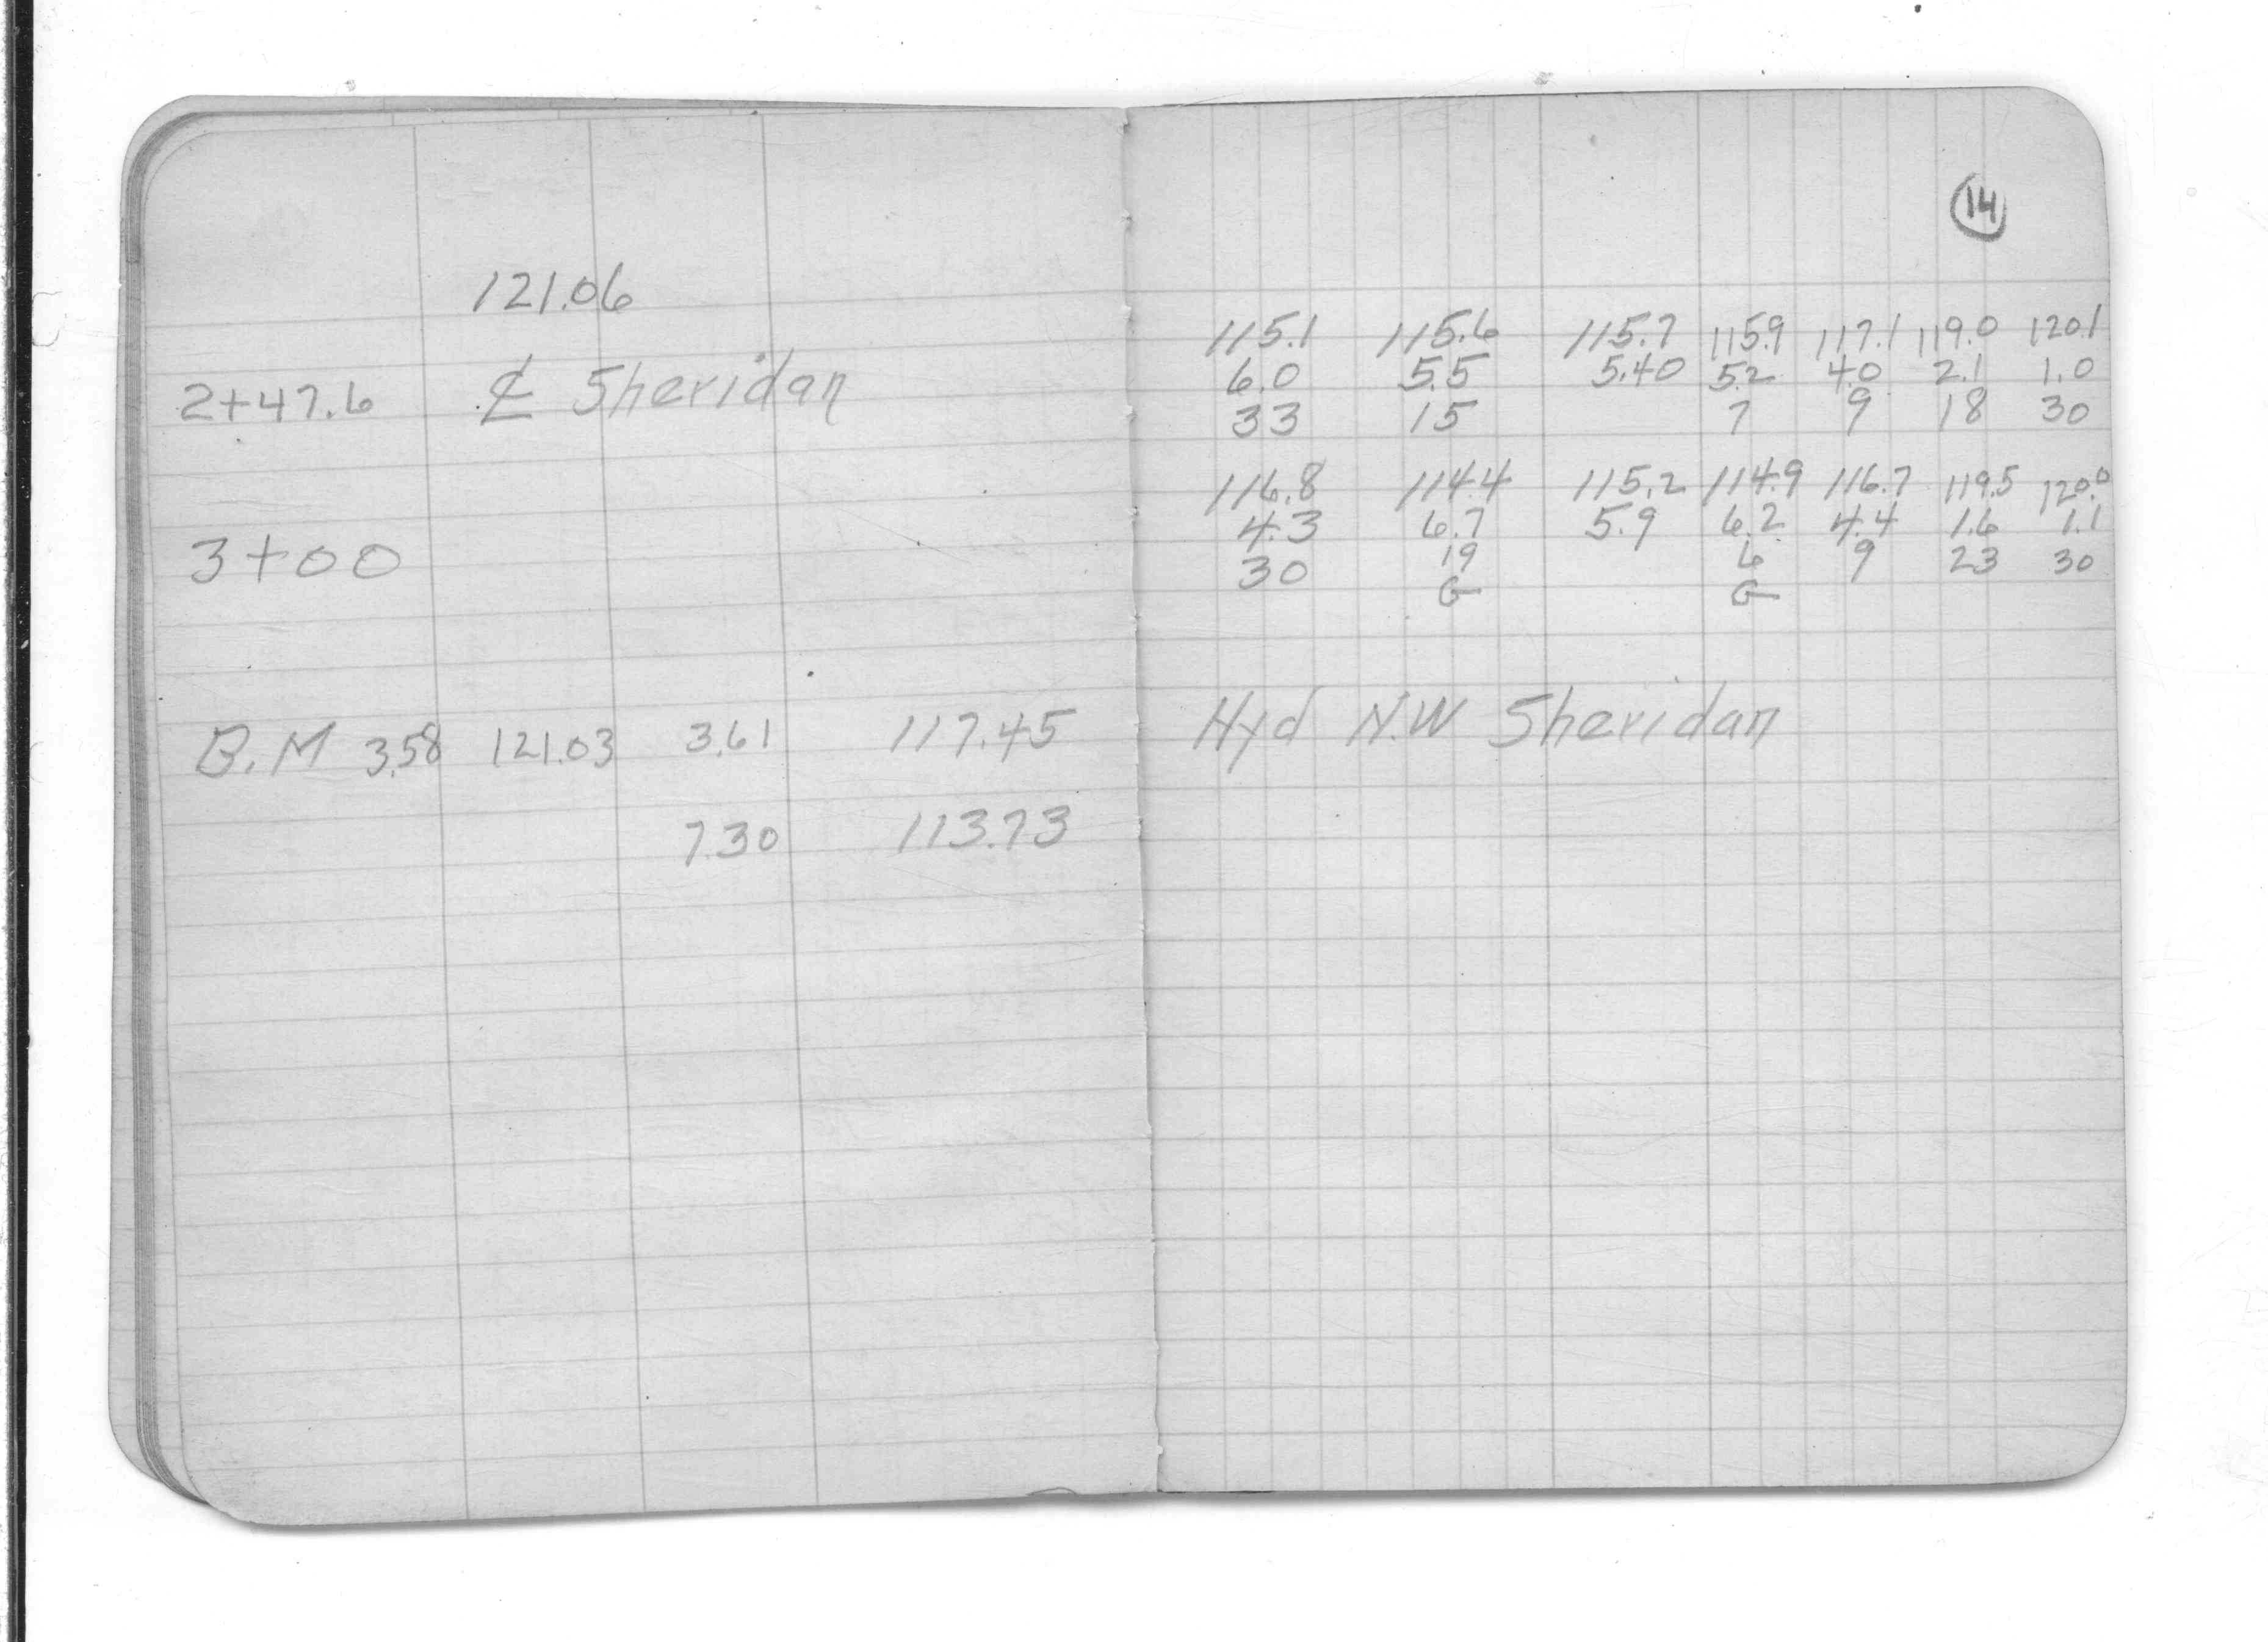 121.06
2+47.6 ℄ Sheridan
3+00
B.M 3.58 121.03 3.61 117.45
7.30 113.73
14
115.1 115.6 115.7 115.9 117.1 119.0 120.1
6.0 5.5 5.40 5.2 4.0 2.1 1.0
33 15 7 9 18 30
116.8 114.4 115.2 114.9 116.7 119.5 120.0
4.3 6.7 5.9 6.2 4.4 1.6 1.1
30 19 6 9 23 30
G G
Hyd N.W Sheridan